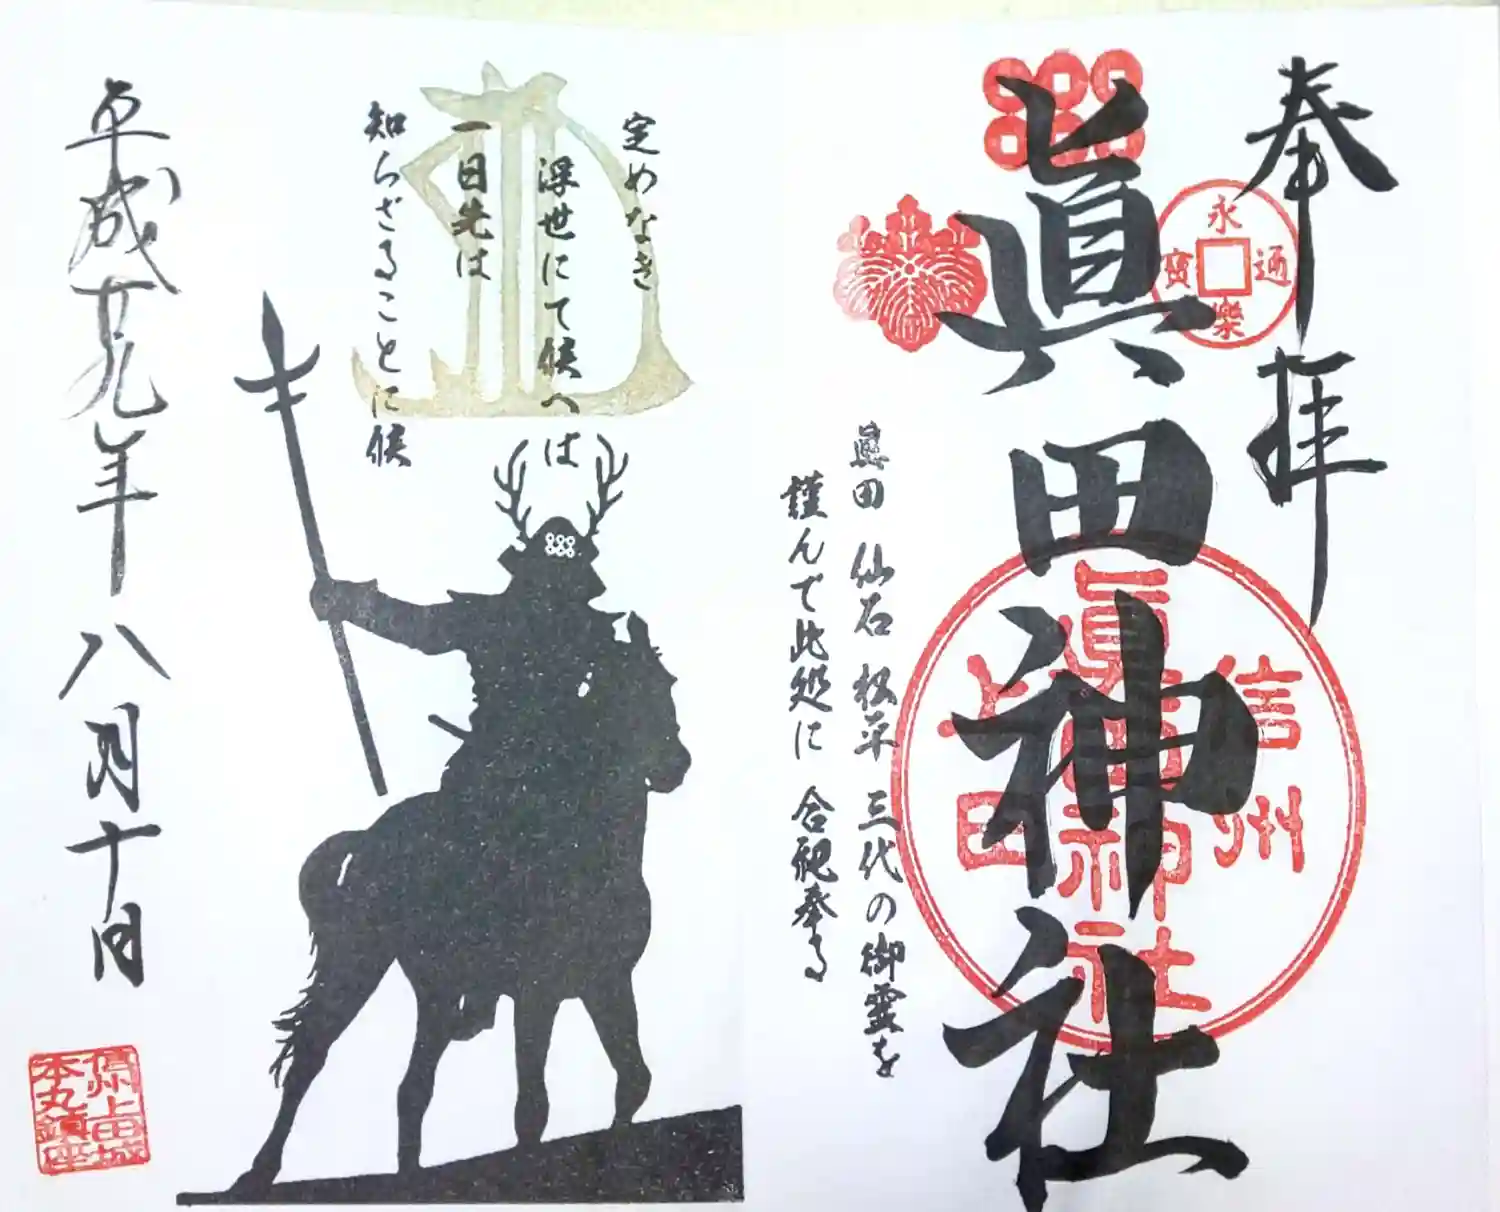 奉拝
永樂通寳
眞田神社
信州
眞田神社
上田
眞田 仙石 松平 三代の御霊を
謹んで此処に 合祀奉る
定めなき
浮世にて候へは
一日先は
知らざることに候
平成廿九年 八月十日
信州上田城
本丸鎮座